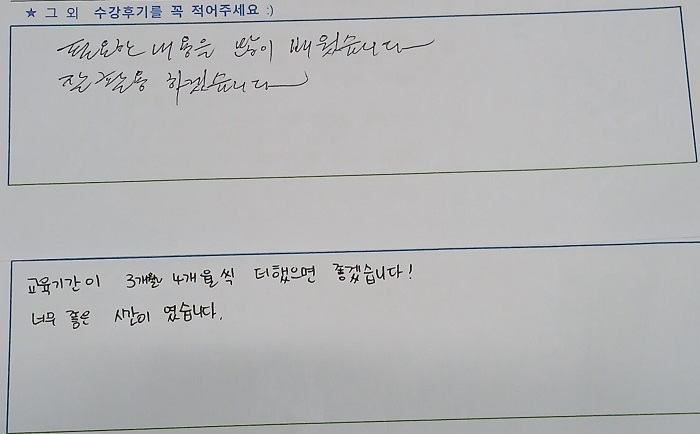 ★ 그 외 수강후기를 꼭 적어주세요 :)
필요한 내용을 많이 배웠습니다
잘 활용 하겠습니다
교육기간이 3개월 4개월씩 더했으면 좋겠습니다!
너무 좋은 시간이 였습니다.